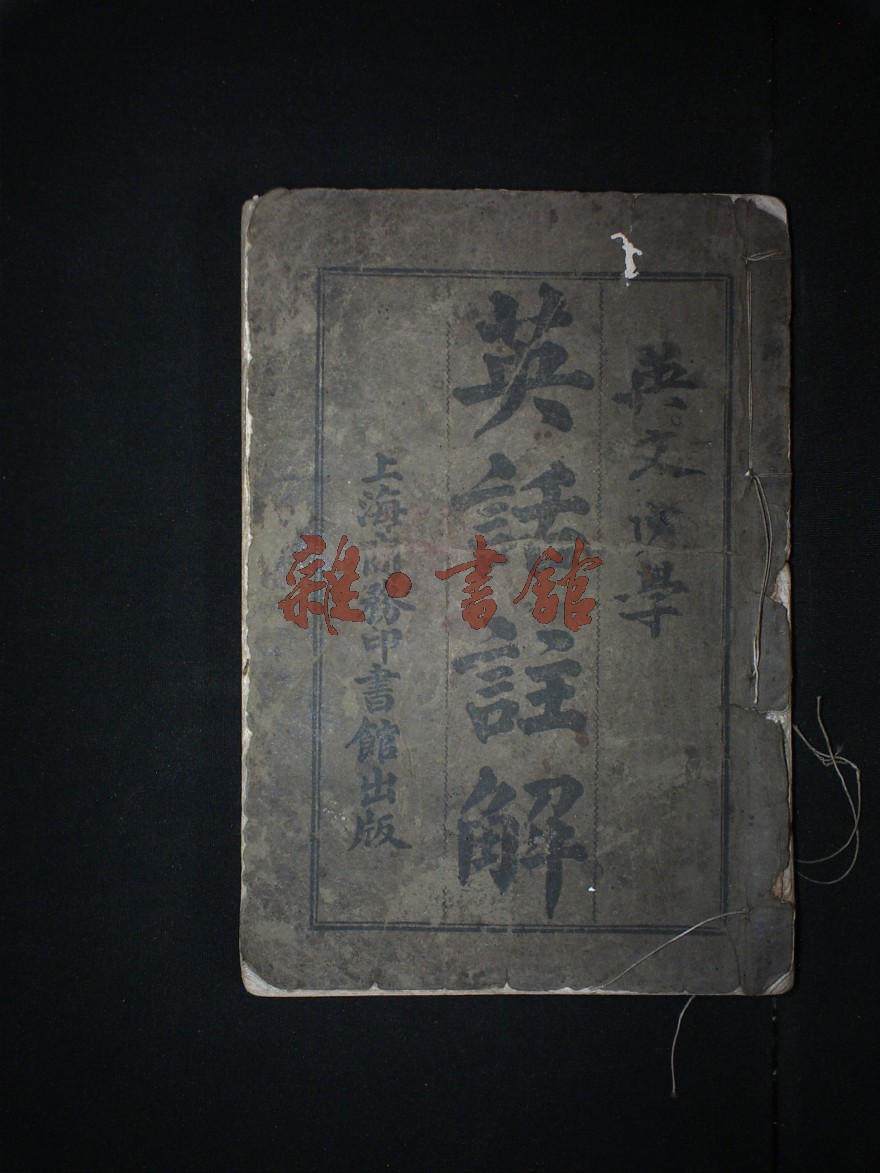 英文學
英話註解
上海商務印書館出版
雜·書館